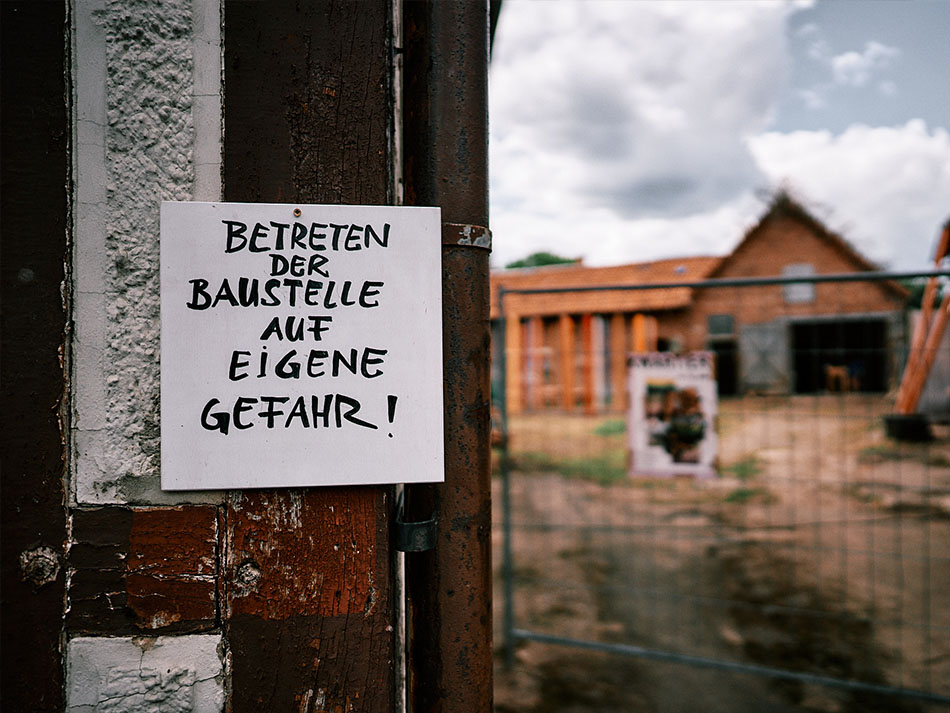 BETRETEN
DER
BAUSTELLE
AUF
EIGENE
GEFAHR!